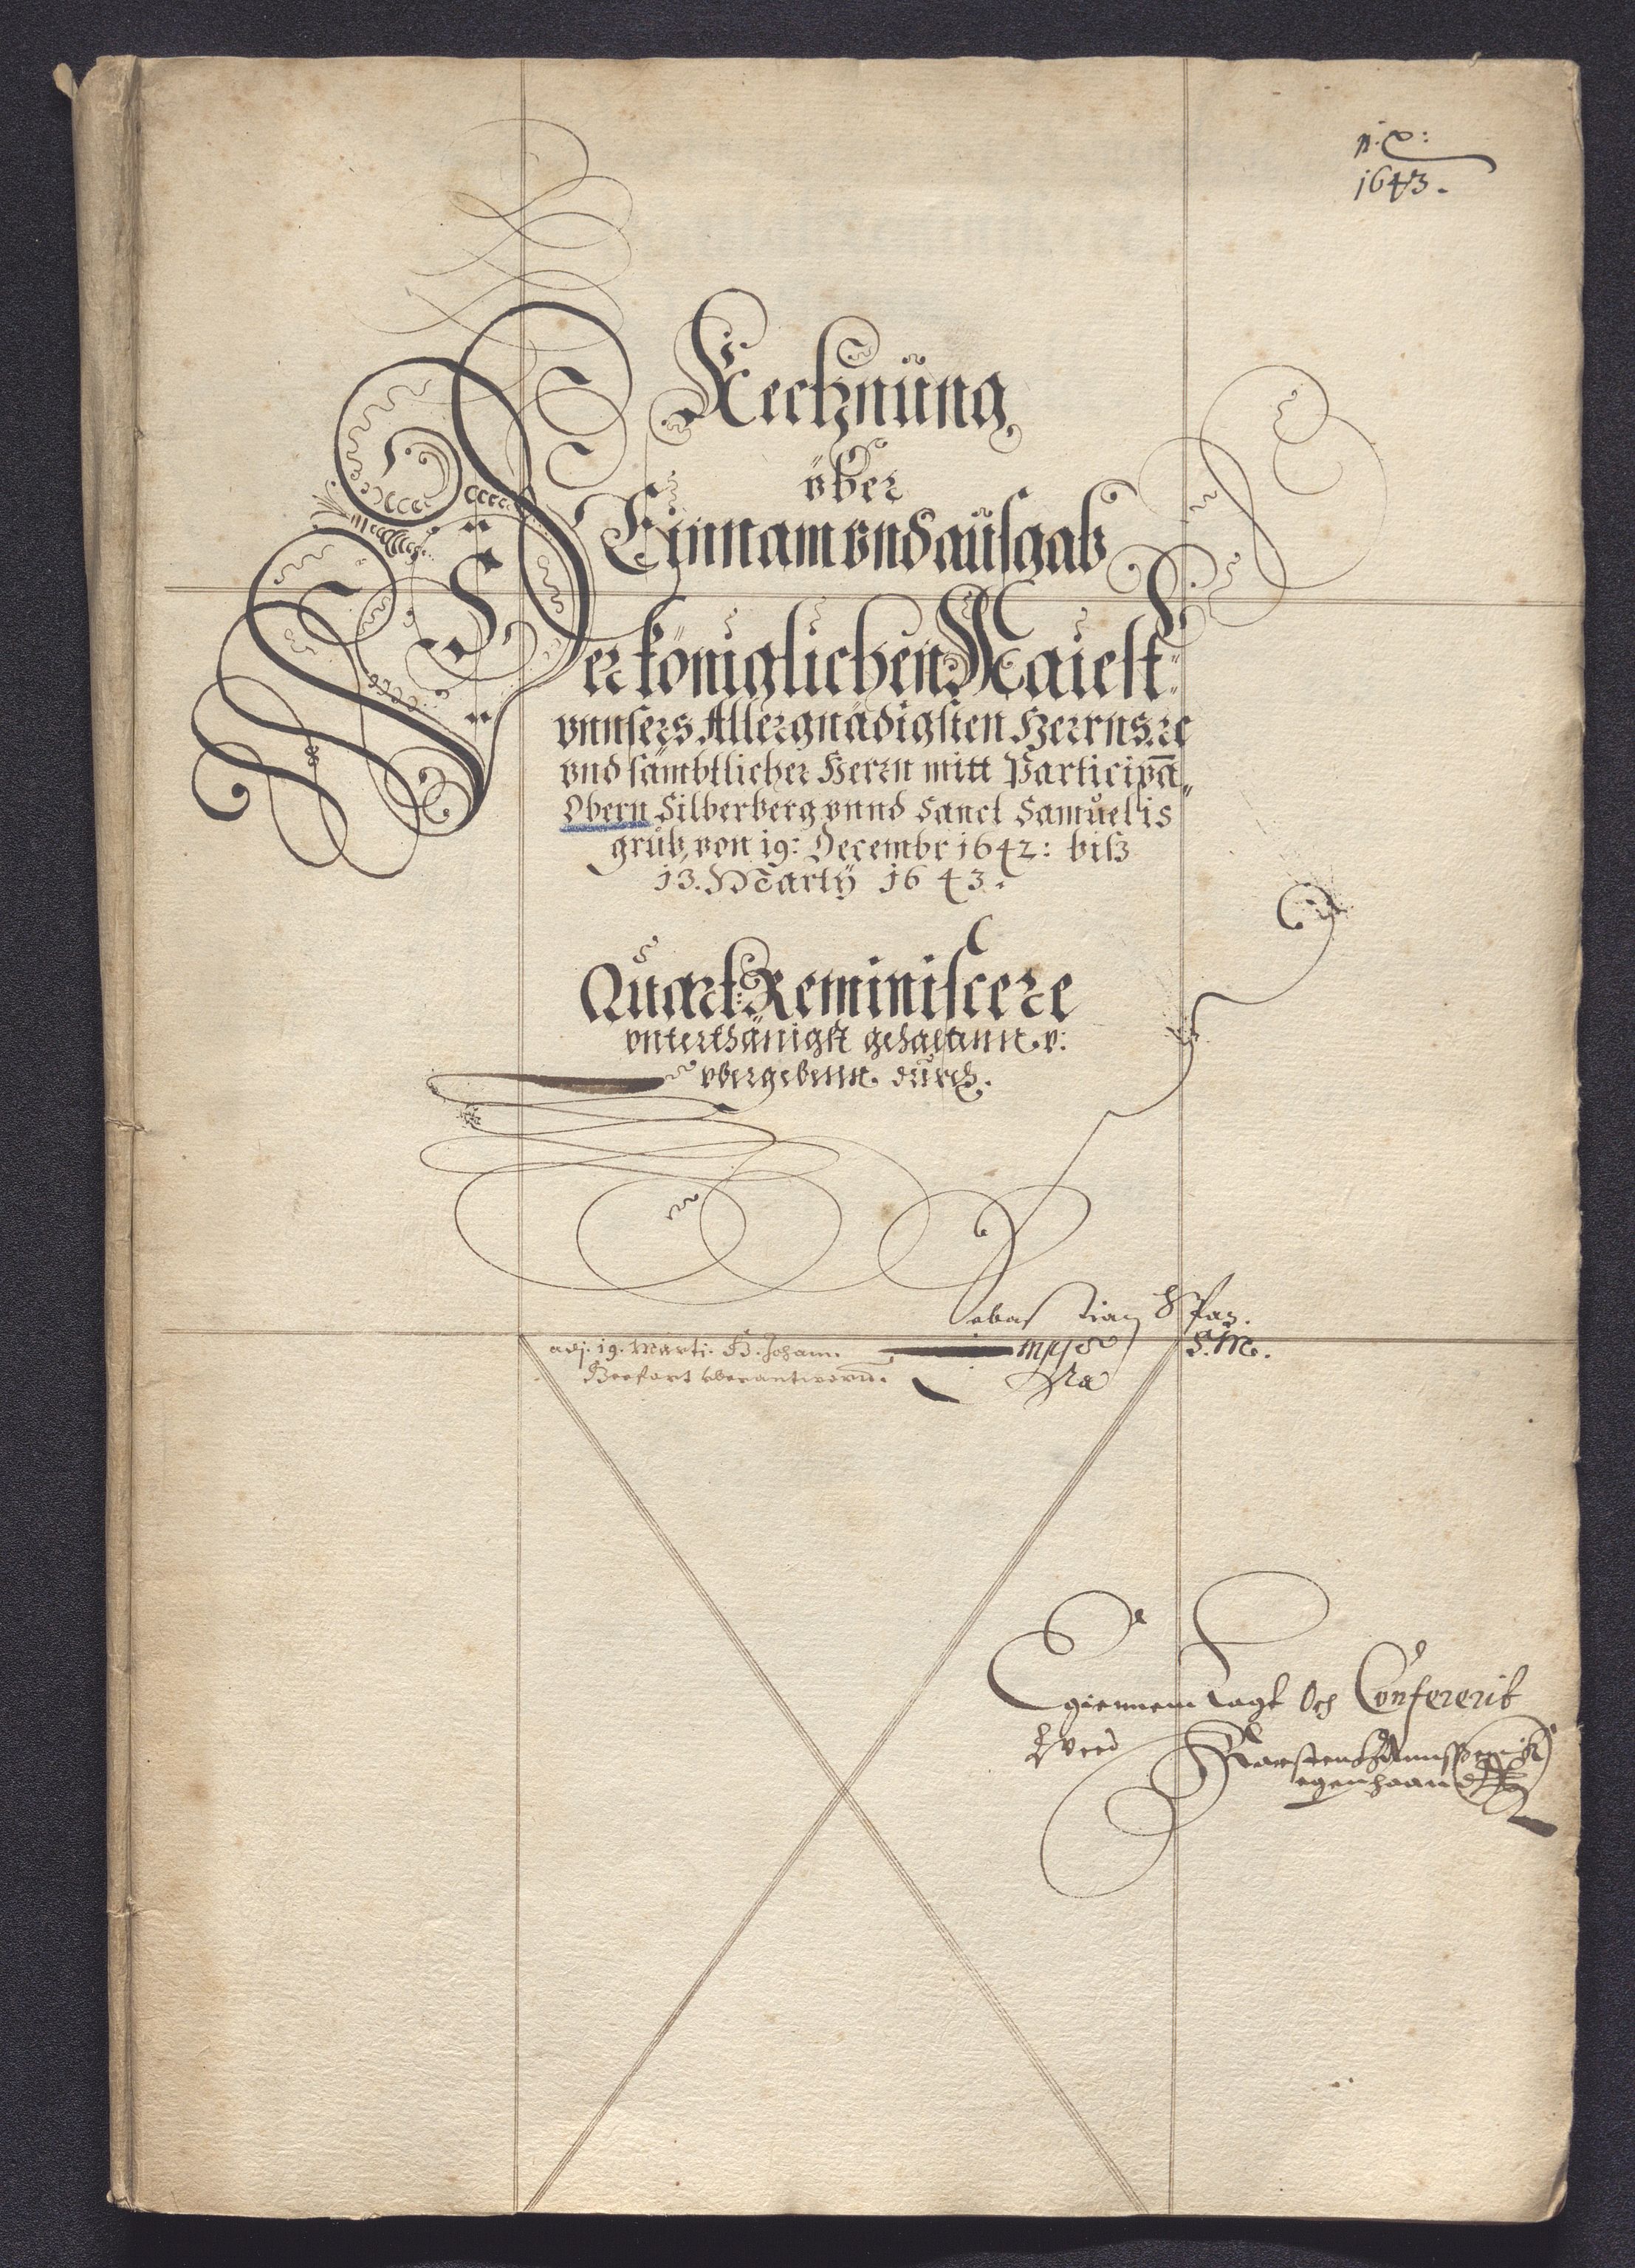 1643.
Rechnüng
über
Einnam vnd aüsgab
Der königlichen Maiest:
vnnsers Allergnädigsten Herrns ꝛc
vnd sämbtlicher Herrn mitt Participā„
Obern Silberberg vnnd Sanct Samüelis
grüb, von 19: Decembr 1642: biß
13. Marty 1643.
Quart: Reminiscere
vnterthänigst gehaltenn v:
vbergebenn dürch.
Sebastian Span.
S. M.
adj. 19. Marti. H. Johann
vberantworth.
Egiennem lagt Och Confererit
egenhaand